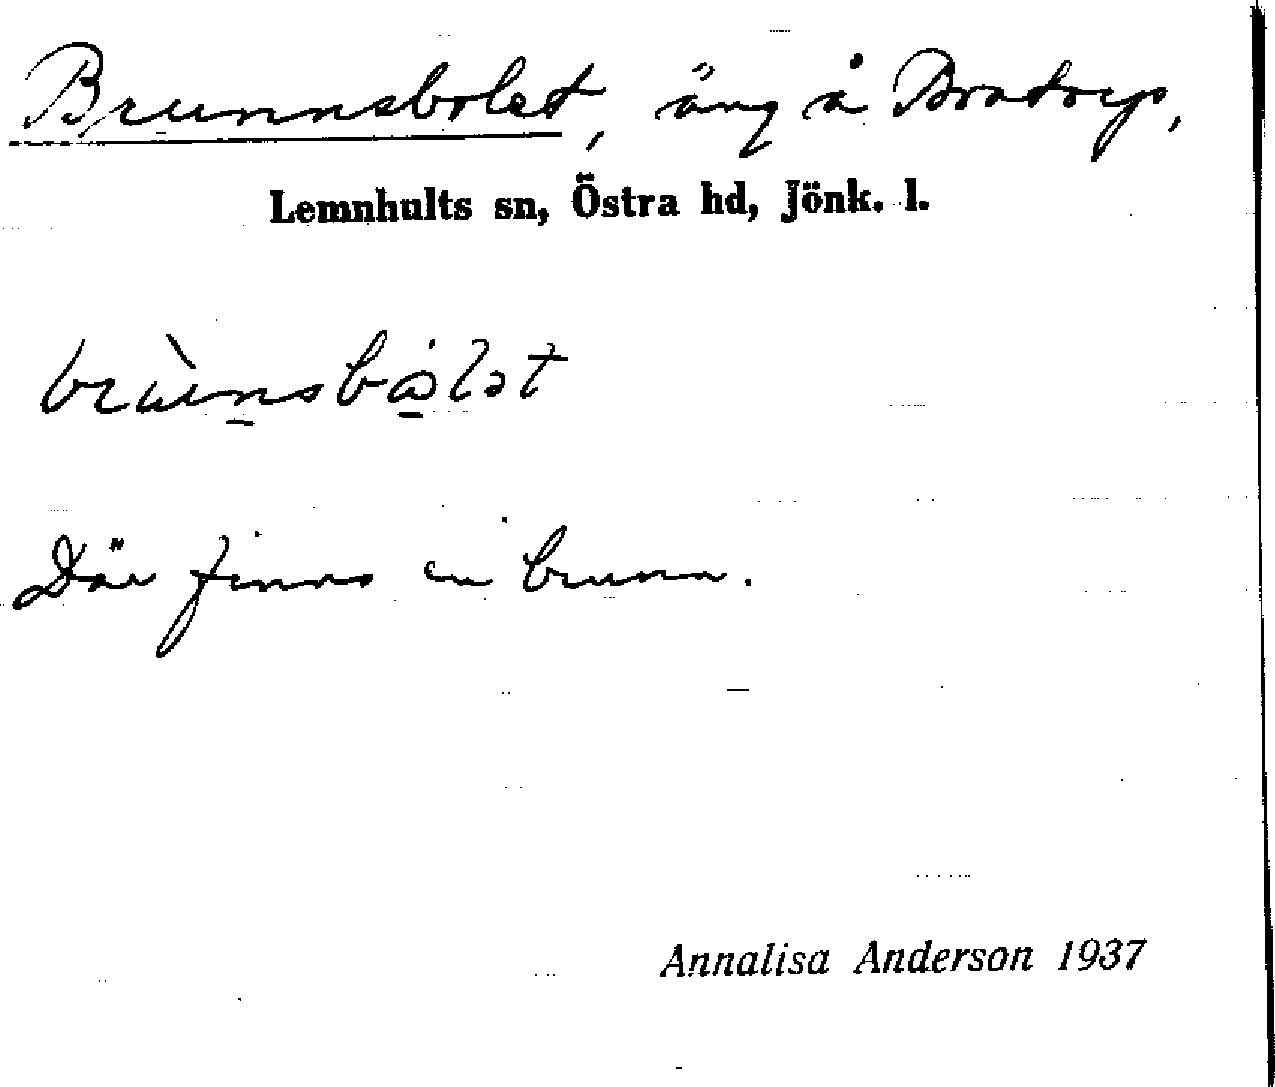 Brunnsbolet, äng å Brotorp,
Lemnhults sn, Östra hd, Jönk. l.
Där finns en brunn.
Annalisa Anderson 1937